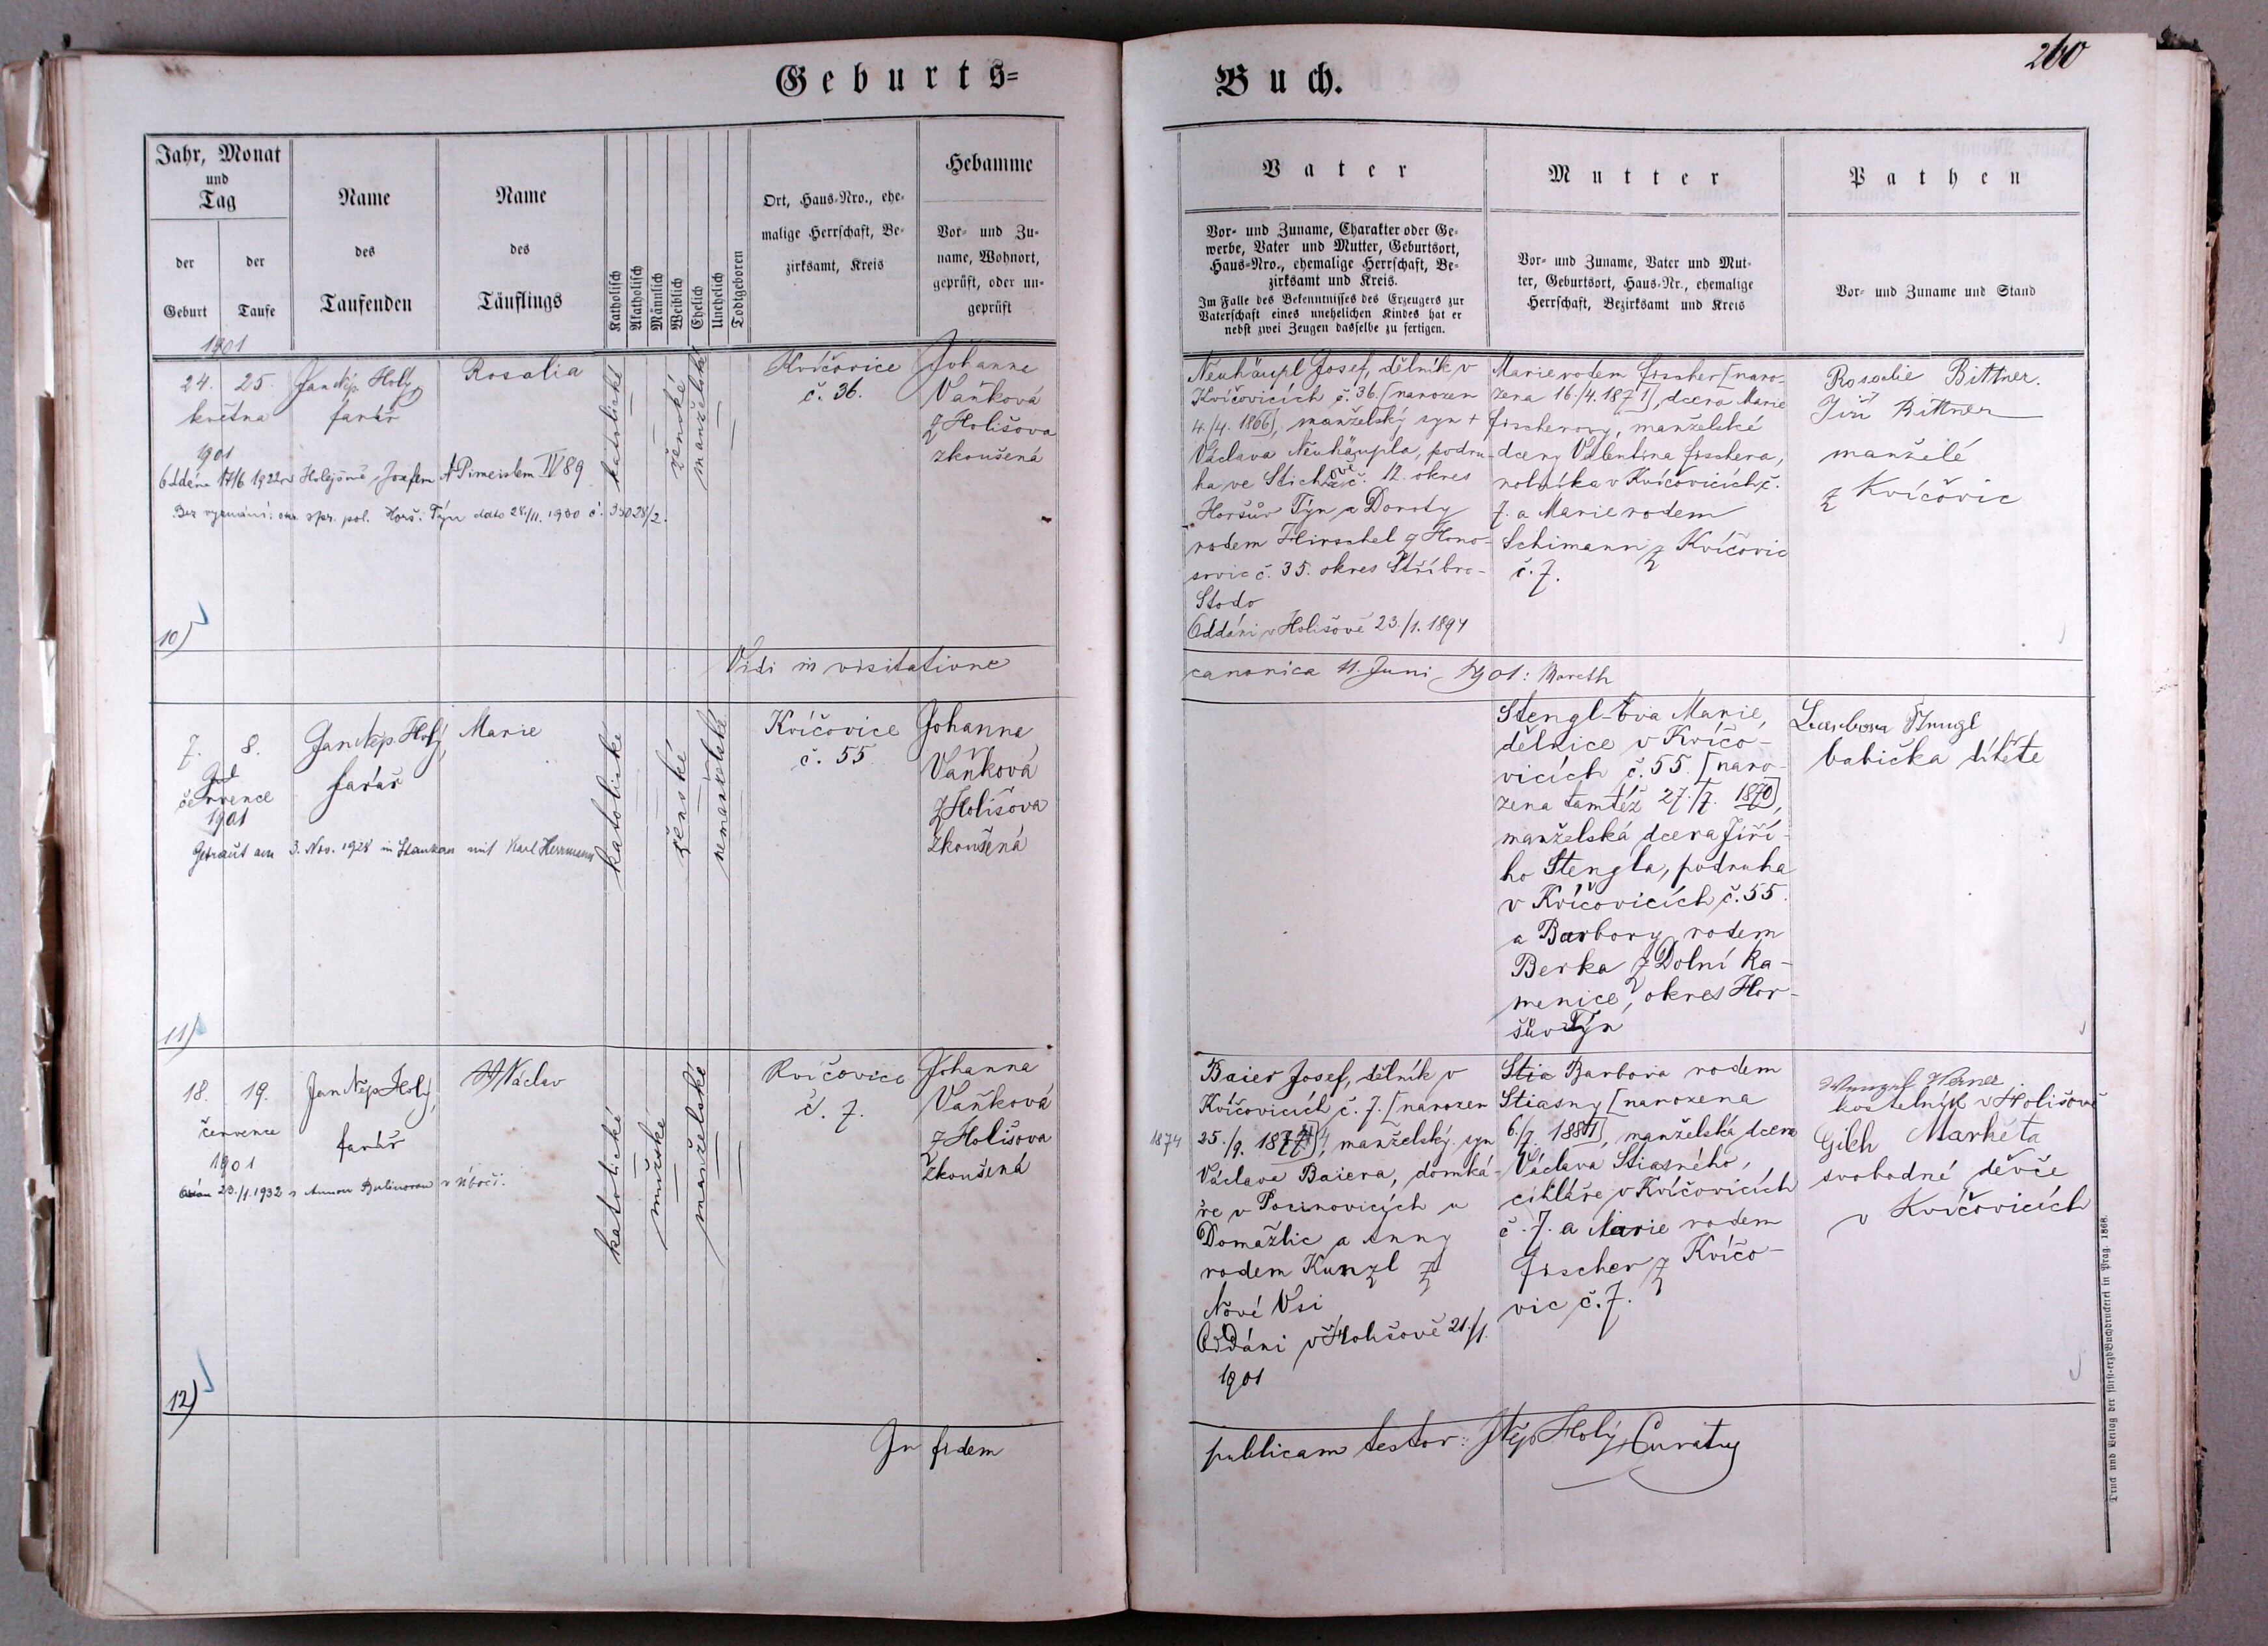 Geburts=
Buch.
260
Jahr, Monat
und
Tag
der
Geburt
der
Taufe
Name
des
Taufenden
Name
des
Täuflings
Katholisch
Akatholisch
Männlich
Weiblich
Ehelich
Unehelich
Todtgeboren
Ort, Haus-Nro., ehe-
malige Herrschaft, Be-
zirksamt, Kreis
Hebamme
Vor- und Zu-
name, Wohnort,
geprüft, oder un-
geprüft
Vater
Vor- und Zuname, Charakter oder Ge-
werbe, Vater und Mutter, Geburtsort,
Haus-Nro., ehemalige Herrschaft, Be-
zirksamt und Kreis.
Im Falle des Bekenntnisses des Erzeugers zur
Vaterschaft eines unehelichen Kindes hat er
nebst zwei Zeugen dasselbe zu fertigen.
Mutter
Vor- und Zuname, Vater und Mut-
ter, Geburtsort, Haus-Nr., ehemalige
Herrschaft, Bezirksamt und Kreis
Pathen
Vor- und Zuname und Stand
1901
24. 25.
května
1901
Jan Nep. Holý
farář
Rosalia
katolické
ženské
manželské
Kvíčovice
č. 36.
Johanna
Vaňková
z Holišova
zkoušená
Oddána 17/6 1922 v Holejšově s Josefem Pimeislem IV 89
Bez vyznání: spr. pol. Horš. Týn dato 28./11. 1930 č. 35028/2.
10)
Neuhäupl Josef, dělník v
Kvíčovicích č. 36. [narozen
4./4. 1866], manželský syn +
Václava Neuhäupla, podru-
ha ve Stichově č. 12. okres
Horšův Týn a Doroty
rodem Hirschel z Hono-
sovic č. 35. okres Stříbro-
Stodo
Oddáni v Holišově 23./1. 1894
Marie rodem Fischer [naro-
zena 16./4. 1871], dcera Marie
Fischerovy, manželské
dcery Valentina Fischera,
rolníka v Kvíčovicích č.
7. a Marie rodem
Schimann z Kvíčovic
č. 7.
Rosalie Bittner.
Jiří Bittner
manželé
z Kvíčovic
Vidi in visitatione
canonica 11. Juni 1901: Mareth
7. 8.
července
1901
Jan Nep. Holý,
farář
Marie
katolické
ženské
nemanželské
Kvíčovice
č. 55.
Johanna
Vaňková
z Holišova
zkoušená
Getraut am 3. Nov. 1928 in Stankau mit Karl Herrmann
11)
Stengl Eva Marie,
dělnice v Kvíčo-
vicích č. 55. [naro-
zena tamtéž 27./7. 1870],
manželská dcera Jiří-
ho Stengla, podruha
v Kvíčovicích č. 55.
a Barbory rodem
Berka z Dolní Ka-
menice, okres Hor-
šův Týn
babička dítěte
18. 19.
července
1901
Jan Nep Holý,
farář
Václav
katolické
mužské
manželské
Kvíčovice
č. 7.
Johanna
Vaňková
z Holišova
zkoušená
23./1. 1932 s Annou v Úboči.
12)
1874
Baier Josef, dělník v
Kvíčovicích č. 7. [narozen
25./9. 1874], manželský syn
Václava Baiera, domká-
ře v Pocinovicích u
Domažlic a Anny
rodem Kunzl z
Nové Vsi
Oddáni v Holišově 21./1.
1901
Stia Barbora rodem
Stiasny [narozena
6./9. 1881], manželská dcera
Václava Stiasného,
cihláře v Kvíčovicích
č. 7. a Marie rodem
Fischer z Kvíčo-
vic č. 7.
Wenzel Werner
kostelník v Holišově
Gibh Markéta
svobodné děvče
v Kvíčovicích
In fidem
publicam testor: JNep Holý, Curatus
Druck und Verlag der fürst-erzb Buchdruckerei in Prag. 1868.